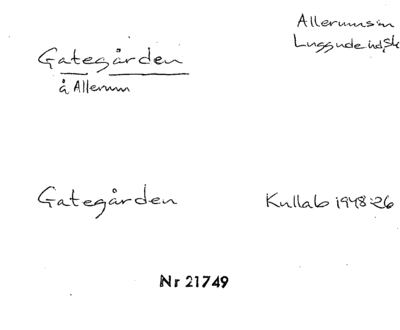 Allerums sn
Luggude hd, Sk
Gategården
å Allerum
Gategården
Kullab 1948:26
Nr 21749